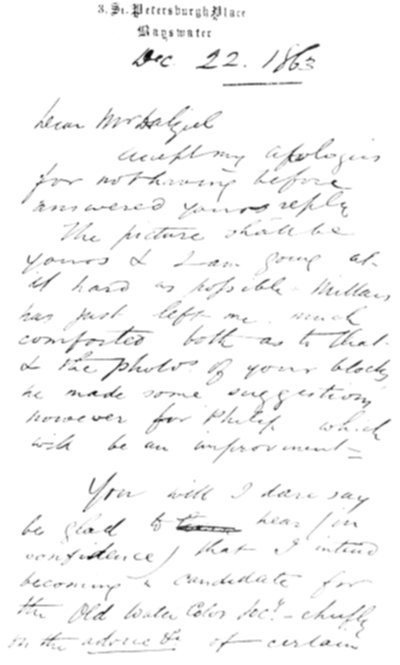 3. St. Petersburgh Place
Bayswater
Dec. 22. 1863
Dear Mr Dalziel
accept my apologies
for not having before
answered yours reply
The picture shall be
yours & I am going at
it hard as possible. Millais
has just left me much
comforted both as to that
& the photos of your blocks
he made some suggestions
however for Philip which
will be an improvement –
You will I dare say
be glad to hear (in
confidence) that I intend
becoming a candidate for
the Old Water Color Socy. – chiefly
on the advice &c of certain